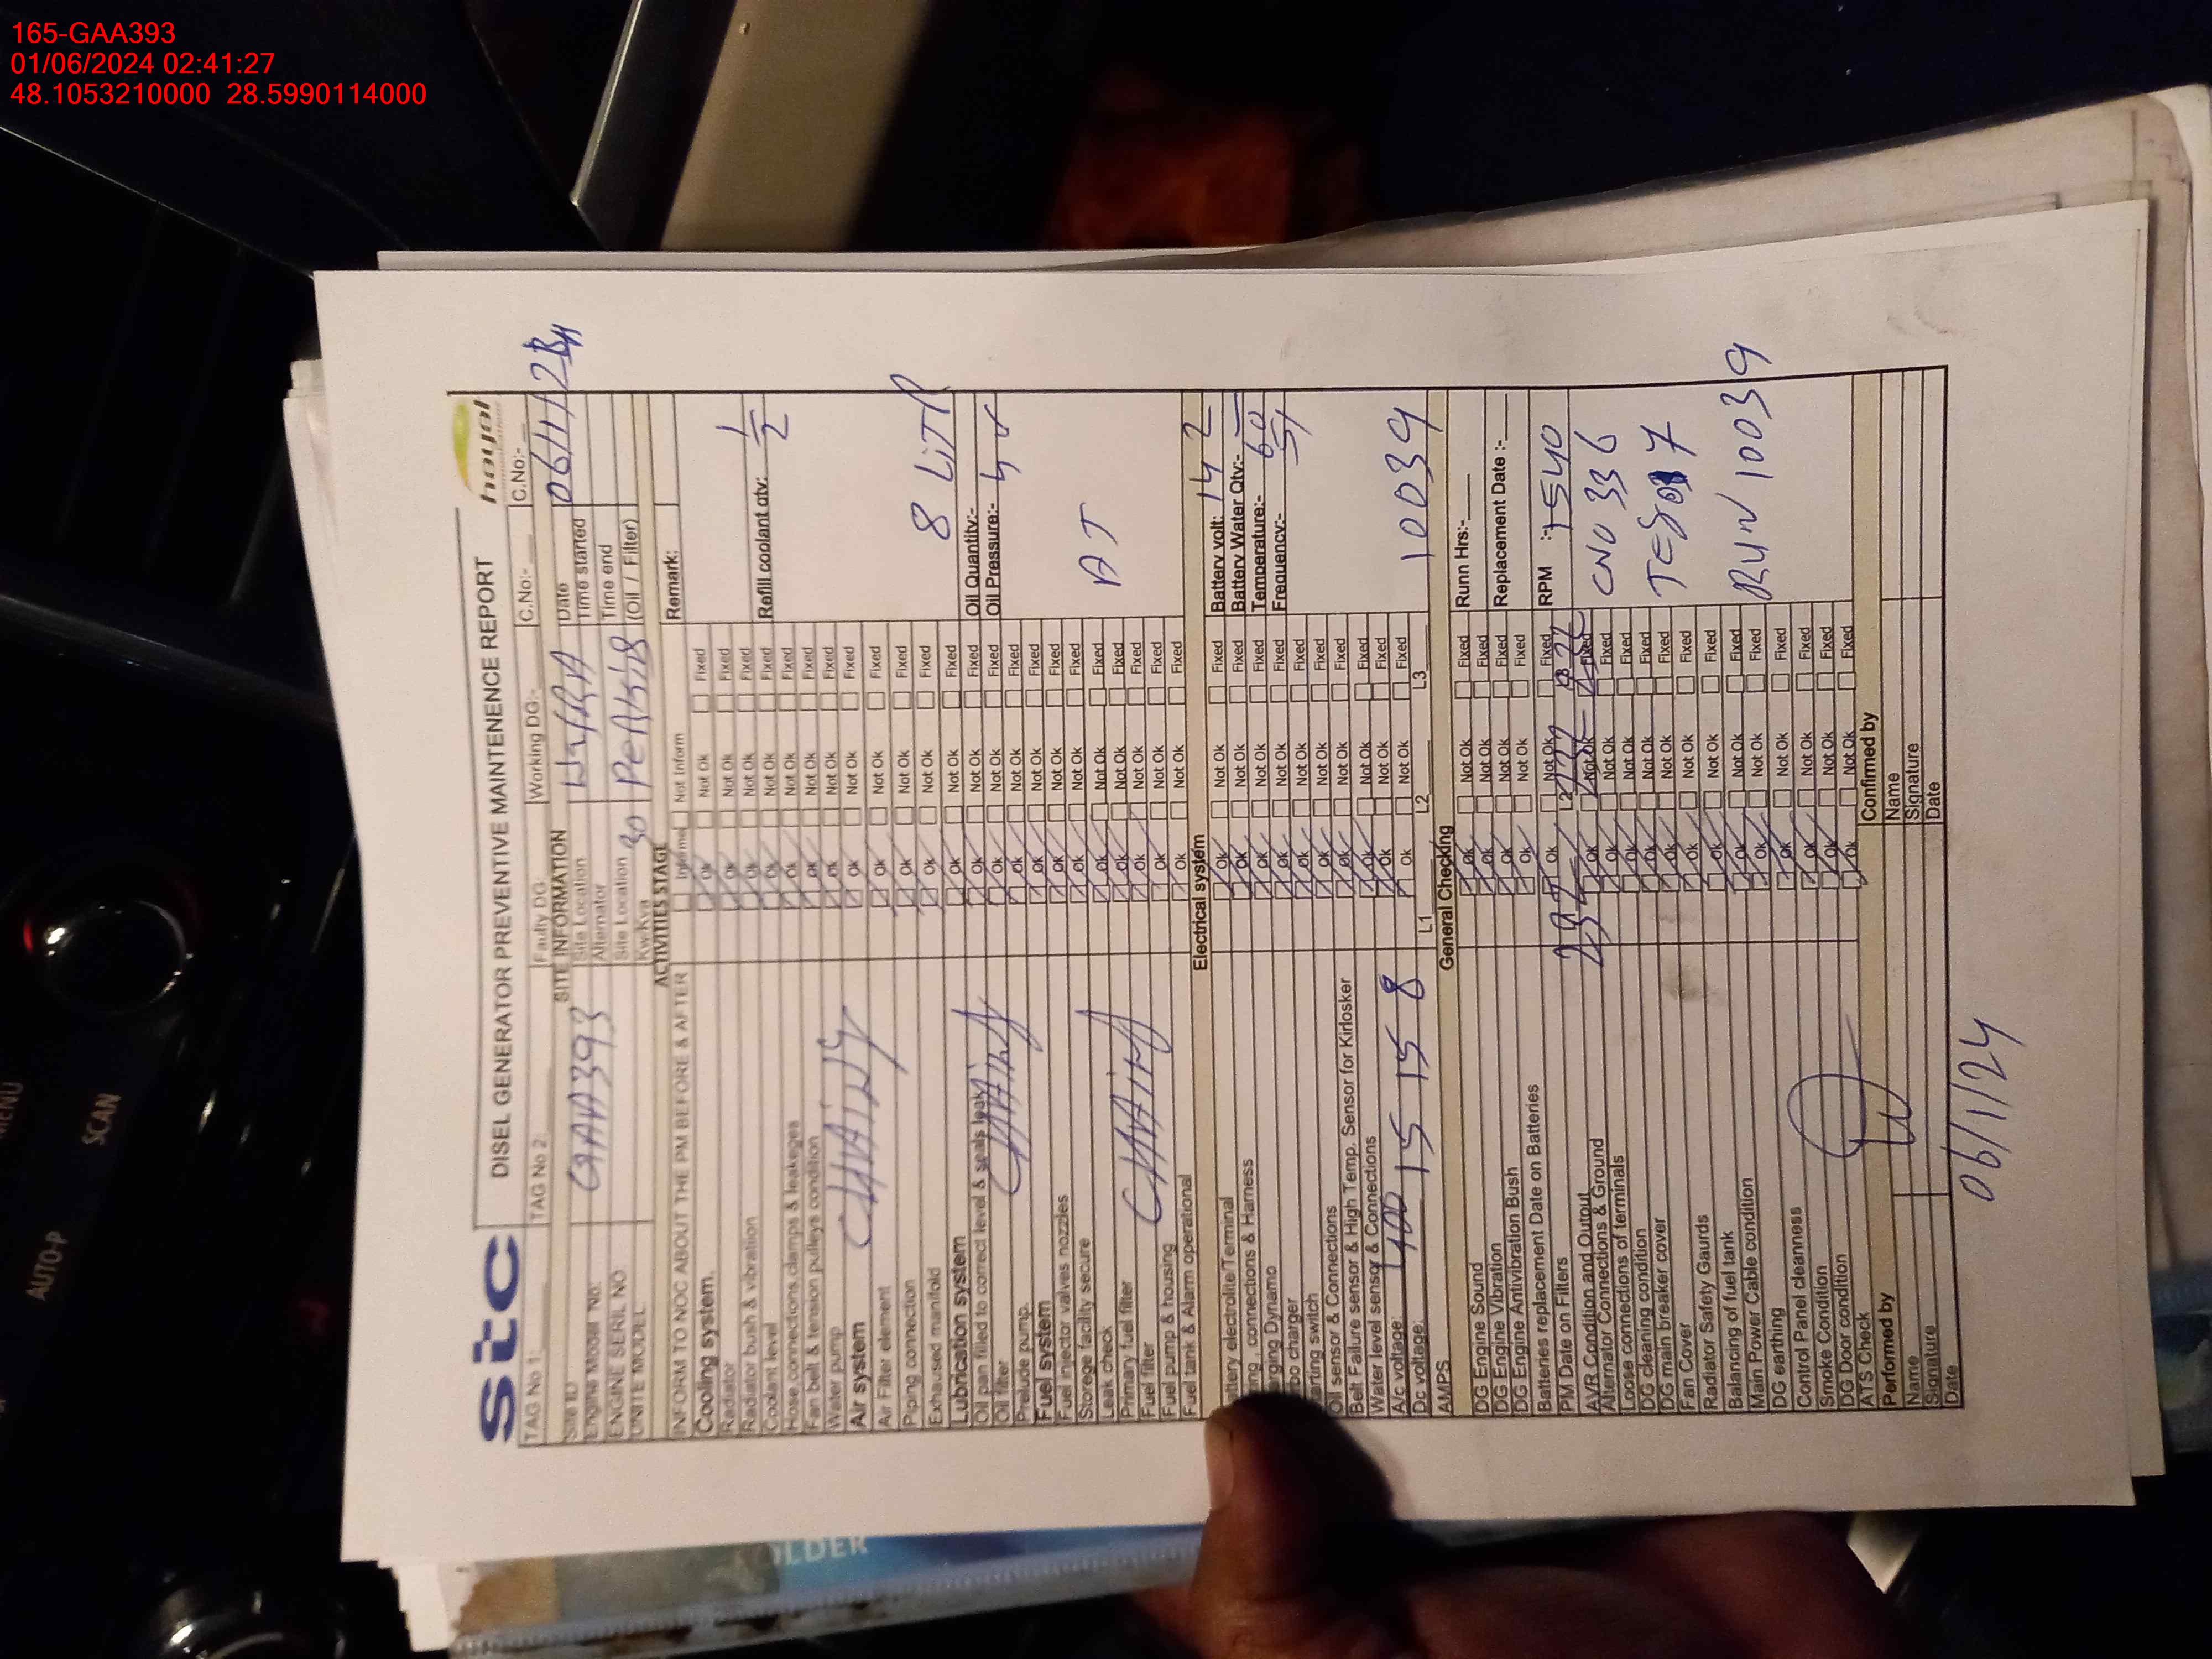 165-GAA393
01/06/2024 02:41:27
48.1053210000 28.5990114000
MENU
AUTO-P
SCAN
OLDER
stc
DISEL GENERATOR PREVENTIVE MAINTENENCE REPORT
TAG No 1:
TAG No 2:
Faulty DG:
Working DG:-
C.No:-
C.No:-
SITE INFORMATION
Site ID
GAA393
Site Location
Date
06/1/24
Engine Model No:
Alternator
Time started
ENGINE SERIL NO
Site Location
Time end
UNITE MODEL
Kw/Kva
30
(Oil / Filter)
ACTIVITIES STAGE
INFORM TO NOC ABOUT THE PM BEFORE & AFTER
Informe
Not Inform
Remark:
Cooling system.
Ok Not Ok Fixed
Radiator
Ok Not Ok Fixed
Radiator bush & vibration
Ok Not Ok Fixed
Coolant level
Ok Not Ok Fixed
Refill coolant qty:
1/2
Hose,connections,clamps & leakeges
Ok Not Ok Fixed
Fan belt & tension pulleys condition
Ok Not Ok Fixed
Water pump
Ok Not Ok Fixed
Air system
Ok Not Ok Fixed
Air Filter element
Ok Not Ok Fixed
Piping connection
Ok Not Ok Fixed
Exhaused manifold
Ok Not Ok Fixed
8 LiTR
Lubrication system
Ok Not Ok Fixed
Oil pan filled to correct level & seals leak
Ok Not Ok Fixed
Oil Quantity:-
Oil filter
Ok Not Ok Fixed
Oil Pressure:-
Prelude pump
Ok Not Ok Fixed
Fuel system
Ok Not Ok Fixed
Fuel injector valves nozzles
Ok Not Ok Fixed
Storege facility secure
Ok Not Ok Fixed
Leak check
Ok Not Ok Fixed
Primary fuel filter
Ok Not Ok Fixed
Fuel filter
Ok Not Ok Fixed
Fuel pump & housing
Ok Not Ok Fixed
Fuel tank & Alarm operational
Ok Not Ok Fixed
Electrical system
electrolite/Terminal
Ok Not Ok Fixed
Battery volt: 14 2
connections & Harness
Ok Not Ok Fixed
Battery Water Qty:-
Dynamo
Ok Not Ok Fixed
Temperature:- 60
charger
Ok Not Ok Fixed
Frequency:- 51
switch
Ok Not Ok Fixed
Oil sensor & Connections
Ok Not Ok Fixed
Belt Failure sensor & High Temp. Sensor for Kirlosker
Ok Not Ok Fixed
Water level sensor & Connections
Ok Not Ok Fixed
A/c voltage:
400
Ok Not Ok Fixed
Dc voltage:
15 15 8
L1 L2 L3
10039
AMPS
General Checking
DG Engine Sound
Ok Not Ok Fixed
Runn Hrs:-
DG Engine Vibration
Ok Not Ok Fixed
DG Engine Antivibration Bush
Ok Not Ok Fixed
Replacement Date :-
Batteries replacement Date on Batteries
Ok Not Ok Fixed
PM Date on Filters
Ok Not Ok Fixed
RPM :- 1540
AVR Condition and Output
L2
Alternator Connections & Ground
Ok Not Ok Fixed
CNO 336
Loose connections of terminals
Ok Not Ok Fixed
DG cleaning condition
Ok Not Ok Fixed
DG main breaker cover
Ok Not Ok Fixed
Fan Cover
Ok Not Ok Fixed
Radiator Safety Gaurds
Ok Not Ok Fixed
Balancing of fuel tank
Ok Not Ok Fixed
Main Power Cable condition
Ok Not Ok Fixed
RUN 10039
DG earthing
Ok Not Ok Fixed
Control Panel cleanness
Ok Not Ok Fixed
Smoke Condition
Ok Not Ok Fixed
DG Door condition
Ok Not Ok Fixed
ATS Check
Ok Not Ok Fixed
Performed by
Confirmed by
Name
Name
Signature
Signature
Date
Date
06/1/24